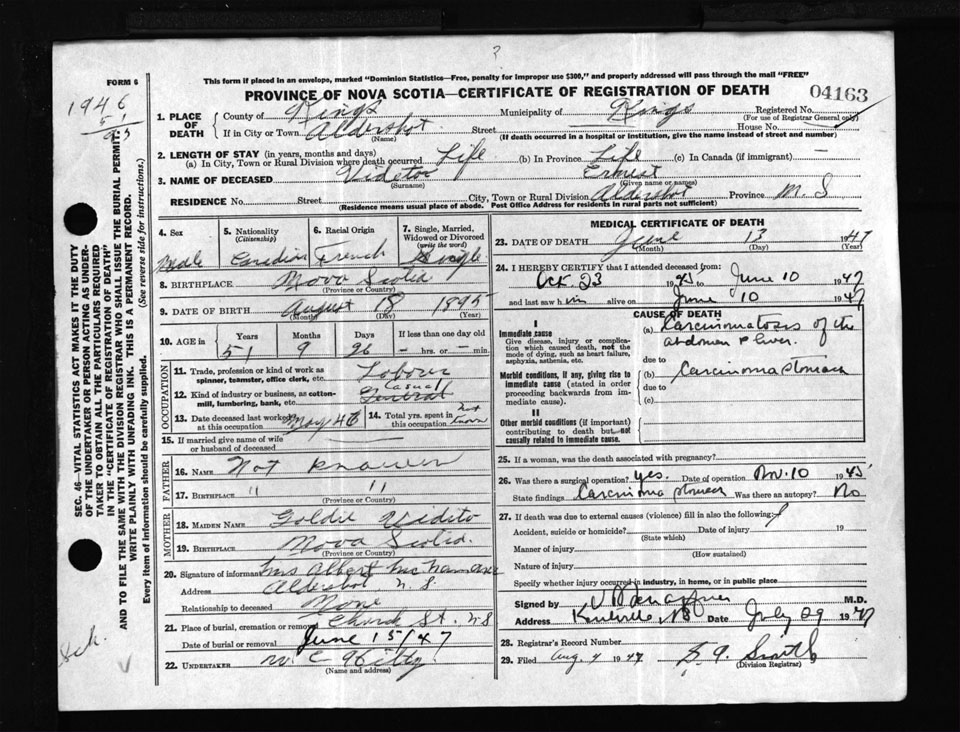 ?
FORM 6
This form if placed in an envelope, marked "Dominion Statistics—Free, penalty for improper use $300," and properly addressed will pass through the mail "FREE"
PROVINCE OF NOVA SCOTIA—CERTIFICATE OF REGISTRATION OF DEATH
04163
1946
51
95
SEC. 46—VITAL STATISTICS ACT MAKES IT THE DUTY
OF THE UNDERTAKER OR PERSON ACTING AS UNDER-
TAKER TO OBTAIN ALL THE PARTICULARS REQUIRED
IN THE "CERTIFICATE OF REGISTRATION OF DEATH"
AND TO FILE THE SAME WITH THE DIVISION REGISTRAR WHO SHALL ISSUE THE BURIAL PERMIT.
WRITE PLAINLY WITH UNFADING INK. THIS IS A PERMANENT RECORD.
Every item of information should be carefully supplied. (See reverse side for instructions.)
1. PLACE OF DEATH
County of Kings Municipality of Kings Registered No.
(For use of Registrar General only)
If in City or Town Aldershot Street House No.
(Name) (If death occurred in a hospital or institution, give the name instead of street and number)
2. LENGTH OF STAY (in years, months and days)
(a) In City, Town or Rural Division where death occurred Life (b) In Province Life (c) In Canada (if immigrant) —
3. NAME OF DECEASED Videtor Ernest
(Surname) (Given name or names)
RESIDENCE No. Street City, Town or Rural Division Aldershot Province N. S
(Residence means usual place of abode. Post Office Address for residents in rural parts not sufficient)
4. Sex Male
5. Nationality (Citizenship) Canadian
6. Racial Origin French
7. Single, Married, Widowed or Divorced (write the word) Single
8. BIRTHPLACE Nova Scotia
(Province or Country)
9. DATE OF BIRTH August 18 1895
(Month) (Day) (Year)
10. AGE in Years Months Days If less than one day old
51 9 26 — hrs. or — min.
OCCUPATION
11. Trade, profession or kind of work as spinner, teamster, office clerk, etc. Laborer
12. Kind of industry or business, as cotton-mill, lumbering, bank, etc. Casual
13. Date deceased last worked at this occupation May 46
14. Total yrs. spent in this occupation Not known
15. If married give name of wife or husband of deceased
FATHER
16. NAME Not known
17. BIRTHPLACE " "
(Province or Country)
MOTHER
18. MAIDEN NAME Goldie Vidito
19. BIRTHPLACE Nova Scotia.
(Province or Country)
20. Signature of informant Mrs Albert
Address Aldershot N S
Relationship to deceased None
21. Place of burial, cremation or removal Church St. NS
Date of burial or removal June 15/47
22. UNDERTAKER W C
(Name and address)
MEDICAL CERTIFICATE OF DEATH
23. DATE OF DEATH June 13 1947
(Month) (Day)
24. I HEREBY CERTIFY that I attended deceased from:
Oct. 23 1945 to June 10 1947
and last saw him alive on June 10 1947
CAUSE OF DEATH
I
Immediate cause
Give disease, injury or complication which caused death, not the mode of dying, such as heart failure, asphyxia, asthenia, etc.
(a) Carcinomatosis of the
abdomen & liver.
due to
Morbid conditions, if any, giving rise to immediate cause (stated in order proceeding backwards from immediate cause).
(b) Carcinoma stomach
due to
(c)
II
Other morbid conditions (if important) contributing to death but not causally related to immediate cause.
25. If a woman, was the death associated with pregnancy?
26. Was there a surgical operation? yes. Date of operation Nov. 10 1945
State findings Carcinoma stomach Was there an autopsy? No
27. If death was due to external causes (violence) fill in also the following:
Accident, suicide or homicide? Date of injury 19
(State which)
Manner of injury
(How sustained)
Nature of injury
Specify whether injury occurred in industry, in home, or in public place
Signed by M.D.
Address Kentville, NS Date July 29 1947
28. Registrar's Record Number
29. Filed Aug. 4 1947 Smith
(Division Registrar)